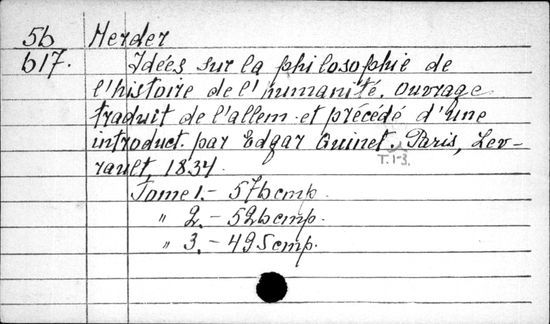 5b Herder
617. Idées sur la philosophie de
l'histoire de l'humanité. Ouvrage
traduit de l'allem. et précédé d'une
introduct. par Edgar Quinet. Paris, Lev-
T. 1-3.
rault, 1834.
Tome 1.- 576 cmp.
" 2.- 526 cmp.
" 3.- 495 cmp.